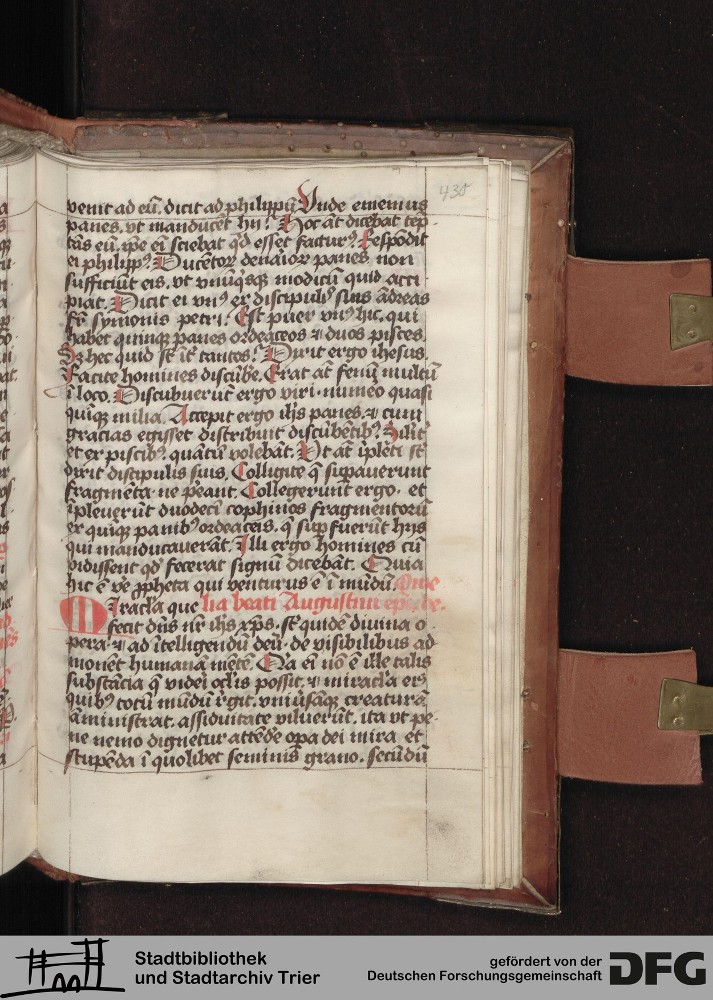 430
venit ad eū. dicit ad philippū Unde ememus
panes. vt manducēt hii? Hoc āt dicebat tēp
tās eū. ip̄e ei sciebat qd̄ esset factur9. Respōdit
ei philipp9. Ducētor denarior panes non
sufficiūt eis. vt vnusq̄sq modicū quid acci
piat. Dicit ei vn9 ex discipul9 suis ādreas
fr̄ symonis petri. Est puer vn9 hic. qui
habet quinqꝫ panes ordeaceos ⁊ duos pisces.
Sꝫ hec quid st̄ īt tantos? Dixit ergo ihesus.
Facite homines discūbe. Erat āt fenū multū
ī loco. Discubuerūt ergo viri. numeo quasi
quīqꝫ milia. Accepit ergo ih̄s panes. ⁊ cum
gracias egisset distribuit discūbētib9. Silit̄
et ex piscib9 quātū volebāt. Vt āt īpleti st̄
dixit discipulis suis. Colligite q̄ supauerunt
fragmēta. ne peant. Collegerunt ergo. et
īpleuerūt duodeci cophinos fragmentorū
ex quīqꝫ panib9 ordeaceis. q̄ supfuerūt hiis
qui manducauerāt. Illi ergo homines cū
vidissent qd̄ fecerat signū dicebāt. Quia
hic ē ve ꝓpheta qui venturus ē ī mūdū. Ome
Miracl̄a que lia beati Augustini epi
fecit dn̄s nr̄ ih̄s xp̄s. st̄ quidē diuina o
pera. ⁊ ad ītelligendū deū. de visibilibus ad
monēt humanā mētē. Q̄a ei nō ē ille talis
substācia q̄ videi ocl̄is possit. ⁊ miracl̄a ei9
quib9 totū mūdū r̄git. vniūsāqꝫ creaturā
āministrat. assiduitate viluerūt. ita vt pe
ne nemo dignetur attēde opa dei mira et
stupēda ī quolibet seminis grano. secūdū
Stadtbibliothek
und Stadtarchiv Trier
gefördert von der
Deutschen Forschungsgemeinschaft
DFG